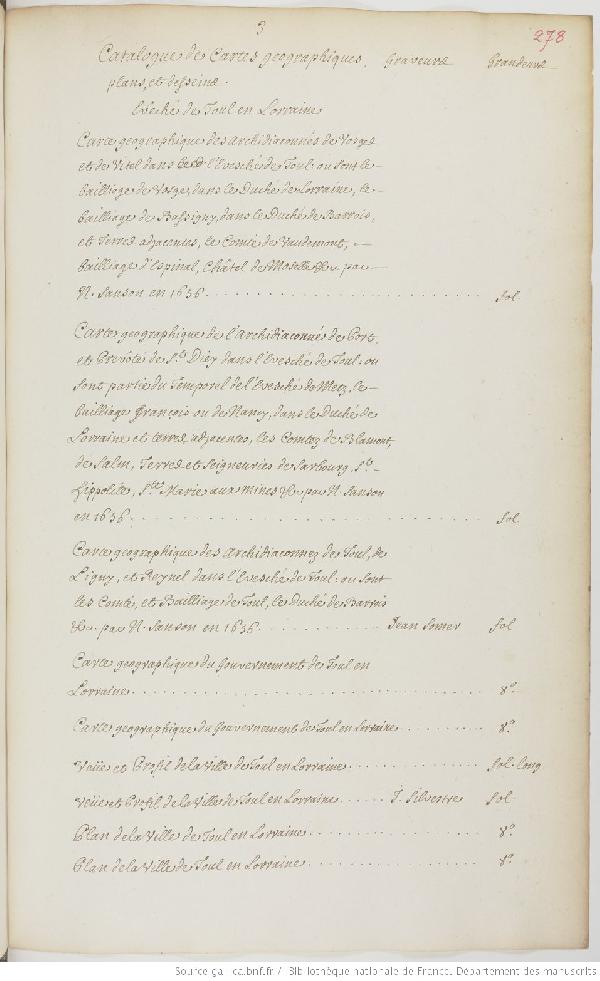 3
278
Catalogue de Cartes geographiques, Graveurs Grandeurs
plans, et desseins.
Evêché de Toul en Lorraine
Carte geographique des Archidiaconnés de Vosges
et de Vitel dans l'Evesché de Toul. ou sont le
bailliage de Vosge, dans le Duché de Lorraine, le
bailliage de Bassigny, dans le Duché de Barrois,
et Terres adjacentes, le Comté de Vaudemont,
bailliage d'Espinal, Châtel de Moselle &c. par
N. Sanson en 1656. fol.
Carte geographique de l'Archidiaconné de Port,
et Prevôté de St. Diey dans l'Evesché de Toul. ou
sont partie du Temporel de l'Evesché de Metz, le
bailliage françois ou de Nancy, dans le Duché de
Lorraine et terres adjacentes, les Comtez de Blamont,
de Salm, Terres et Seigneuries de Sarbourg, St.
hippolite, Ste. Marie aux mines &c. par N. Sanson
en 1656. fol.
Carte geographique des Archidiaconnez de Toul, de
Ligny, et Reynel dans l'Evesché de Toul. ou sont
les Comté, et Bailliage de Toul, le Duché de Barrois
&c. par N. Sanson en 1656. Jean Somer fol
Carte geographique du Gouvernement de Toul en
Lorraine. 8°.
Carte geographique du Gouvernement de Toul en Lorraine 8°.
Veüe et Profil de la Ville de Toul en Lorraine. fol. long
Veüe et Profil de la Ville de Toul en Lorraine. I. Silvestre fol
Plan de la Ville de Toul en Lorraine. 8°.
Plan de la Ville de Toul en Lorraine. 8°.
Source gallica.bnf.fr / Bibliothèque nationale de France. Département des manuscrits.